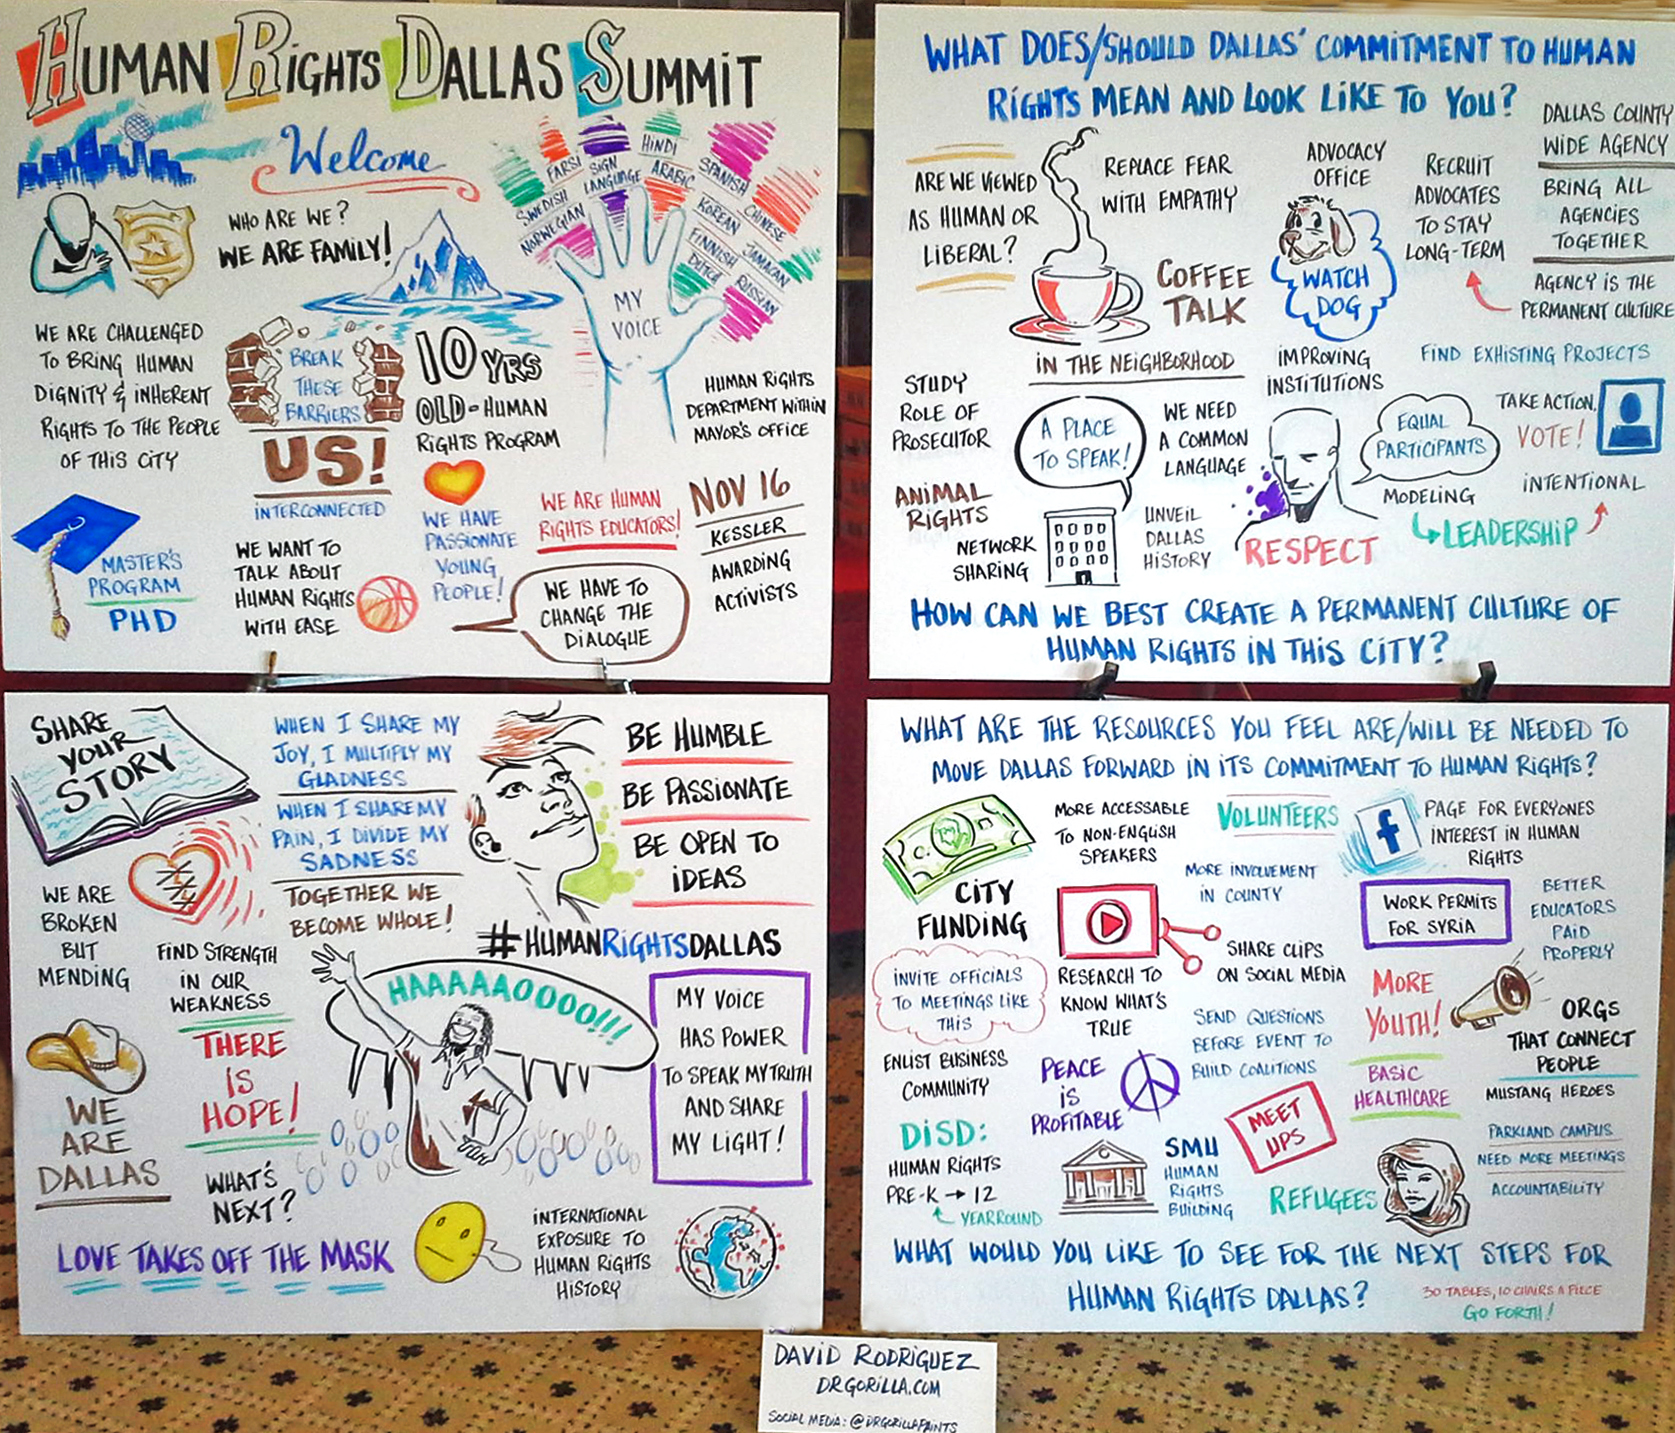 HUMAN RIGHTS DALLAS SUMMIT
Welcome
WHO ARE WE?
WE ARE FAMILY!
FARSI
SIGN
LANGUAGE
HINDI
ARABIC
SPANISH
CHINESE
SWEDISH
NORWEGIAN
KOREAN
FINNISH
DUTCH
JAMACAN
RUSSIAN
MY
VOICE
WE ARE CHALLENGED
TO BRING HUMAN
DIGNITY & INHERENT
RIGHTS TO THE PEOPLE
OF THIS CITY
BREAK
THESE
BARRIERS
US!
INTERCONNECTED
10 YRS
OLD-HUMAN
RIGHTS PROGRAM
HUMAN RIGHTS
DEPARTMENT WITHIN
MAYOR'S OFFICE
MASTER'S
PROGRAM
PHD
WE WANT TO
TALK ABOUT
HUMAN RIGHTS
WITH EASE
WE HAVE
PASSIONATE
YOUNG
PEOPLE!
WE ARE HUMAN
RIGHTS EDUCATORS!
WE HAVE TO
CHANGE THE
DIALOGUE
NOV 16
KESSLER
AWARDING
ACTIVISTS
WHAT DOES/SHOULD DALLAS' COMMITMENT TO HUMAN
RIGHTS MEAN AND LOOK LIKE TO YOU?
ARE WE VIEWED
AS HUMAN OR
LIBERAL?
REPLACE FEAR
WITH EMPATHY
COFFEE
TALK
IN THE NEIGHBORHOOD
ADVOCACY
OFFICE
WATCH
DOG
IMPROVING
INSTITUTIONS
RECRUIT
ADVOCATES
TO STAY
LONG-TERM
DALLAS COUNTY
WIDE AGENCY
BRING ALL
AGENCIES
TOGETHER
AGENCY IS THE
PERMANENT CULTURE
FIND EXHISTING PROJECTS
STUDY
ROLE OF
PROSECUTOR
A PLACE
TO SPEAK!
WE NEED
A COMMON
LANGUAGE
EQUAL
PARTICIPANTS
TAKE ACTION,
VOTE!
ANIMAL
RIGHTS
NETWORK
SHARING
UNVEIL
DALLAS
HISTORY
RESPECT
MODELING
LEADERSHIP
INTENTIONAL
HOW CAN WE BEST CREATE A PERMANENT CULTURE OF
HUMAN RIGHTS IN THIS CITY?
SHARE
YOUR
STORY
WHEN I SHARE MY
JOY, I MULTIPLY MY
GLADNESS
WHEN I SHARE MY
PAIN, I DIVIDE MY
SADNESS
TOGETHER WE
BECOME WHOLE!
BE HUMBLE
BE PASSIONATE
BE OPEN TO
IDEAS
#HUMANRIGHTSDALLAS
WE ARE
BROKEN
BUT
MENDING
FIND STRENGTH
IN OUR
WEAKNESS
THERE
IS
HOPE!
HAAAAAOOOO!!!
MY VOICE
HAS POWER
TO SPEAK MY TRUTH
AND SHARE
MY LIGHT!
WE
ARE
DALLAS
WHAT'S
NEXT?
LOVE TAKES OFF THE MASK
INTERNATIONAL
EXPOSURE TO
HUMAN RIGHTS
HISTORY
WHAT ARE THE RESOURCES YOU FEEL ARE/WILL BE NEEDED TO
MOVE DALLAS FORWARD IN ITS COMMITMENT TO HUMAN RIGHTS?
CITY
FUNDING
MORE ACCESSABLE
TO NON-ENGLISH
SPEAKERS
VOLUNTEERS
f
PAGE FOR EVERYONES
INTEREST IN HUMAN
RIGHTS
MORE INVOLVEMENT
IN COUNTY
WORK PERMITS
FOR SYRIA
BETTER
EDUCATORS
PAID
PROPERLY
INVITE OFFICIALS
TO MEETINGS LIKE
THIS
RESEARCH TO
KNOW WHAT'S
TRUE
SHARE CLIPS
ON SOCIAL MEDIA
MORE
YOUTH!
ORGS
THAT CONNECT
PEOPLE
SEND QUESTIONS
BEFORE EVENT TO
BUILD COALITIONS
ENLIST BUSINESS
COMMUNITY
PEACE
IS
PROFITABLE
BASIC
HEALTHCARE
MUSTANG HEROES
DISD:
HUMAN RIGHTS
PRE-K → 12
YEARROUND
SMU
HUMAN
RIGHTS
BUILDING
MEET
UPS
REFUGEES
PARKLAND CAMPUS
NEED MORE MEETINGS
ACCOUNTABILITY
WHAT WOULD YOU LIKE TO SEE FOR THE NEXT STEPS FOR
HUMAN RIGHTS DALLAS?
30 TABLES, 10 CHAIRS A PIECE
GO FORTH!
DAVID RODRIGUEZ
DRGORILLA.COM
SOCIAL MEDIA: @DRGORILLAPAINTS